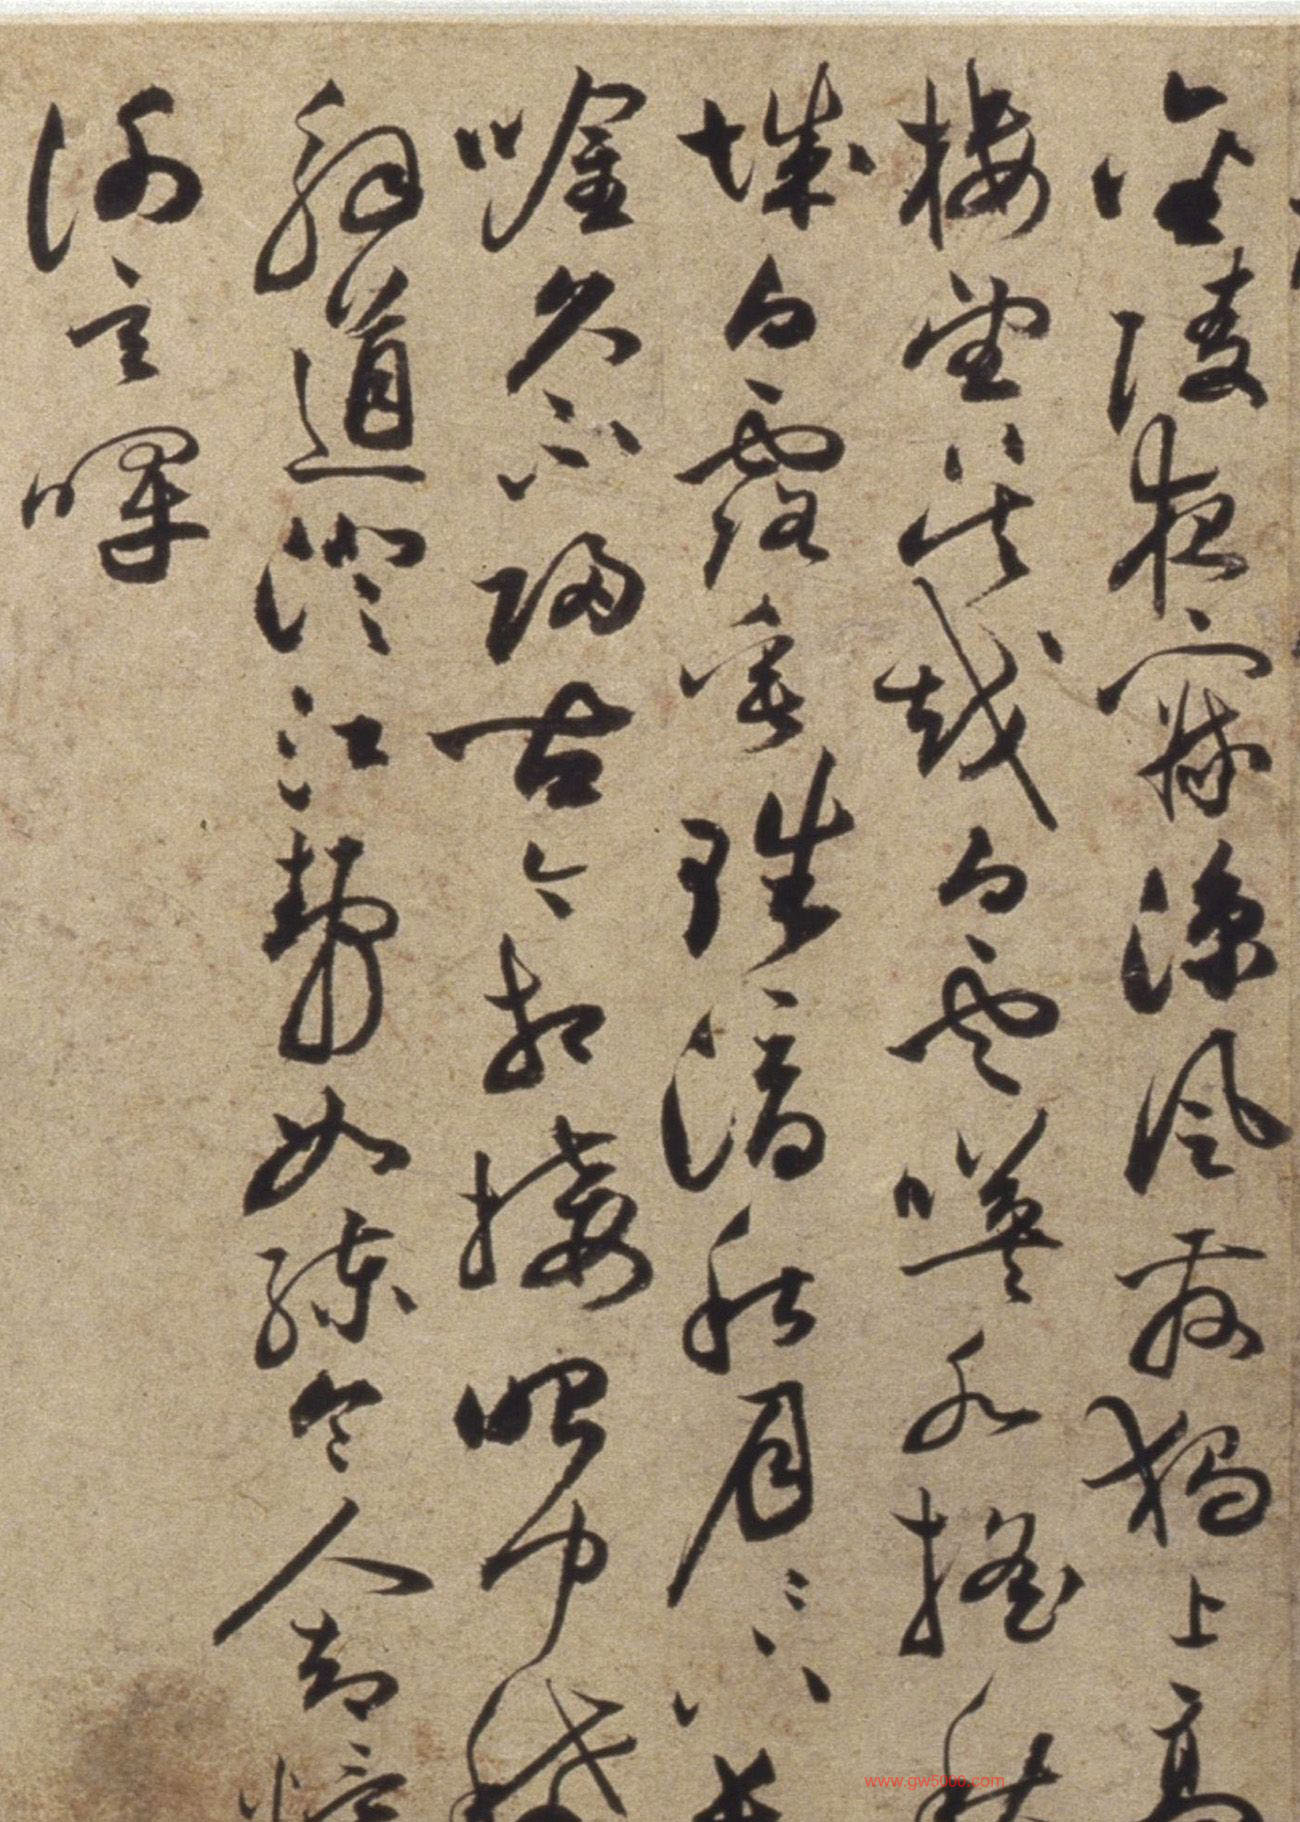 金陵夜寂涼風發獨上高
樓望吳越白雲暎水搖秋
城白露垂珠滴秋月〻下長
唫久不歸古今相接眼中稀
解道澄江靜如練令人却憶
謝玄暉
www.gw5000.com